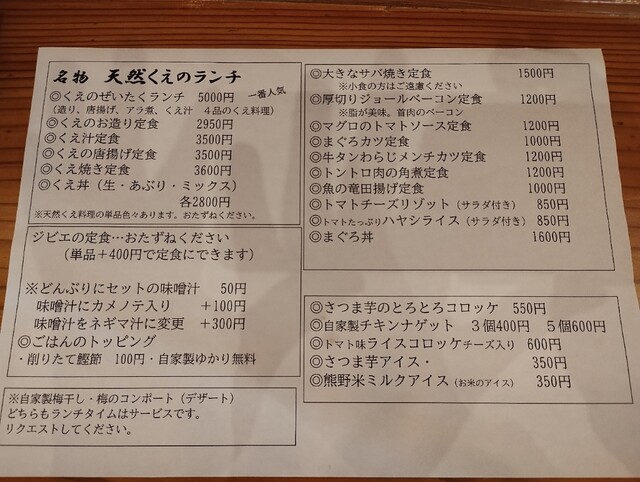 名物 天然くえのランチ
◎くえのぜいたくランチ 5000円 一番人気
(造り、唐揚げ、アラ煮、くえ汁 4品のくえ料理)
◎くえのお造り定食 2950円
◎くえ汁定食 3500円
◎くえの唐揚げ定食 3500円
◎くえ焼き定食 3600円
◎くえ丼(生・あぶり・ミックス)
各2800円
※天然くえ料理の単品色々あります。おたずねください。
ジビエの定食…おたずねください
(単品+400円で定食にできます)
※どんぶりにセットの味噌汁 50円
味噌汁にカメノテ入り +100円
味噌汁をネギマ汁に変更 +300円
◎ごはんのトッピング
・削りたて鰹節 100円・自家製ゆかり無料
※自家製梅干し・梅のコンポート(デザート)
どちらもランチタイムはサービスです。
リクエストしてください。
◎大きなサバ焼き定食 1500円
※小食の方はご遠慮ください
◎厚切りジョールベーコン定食 1200円
※脂が美味。首肉のベーコン
◎マグロのトマトソース定食 1000円
◎まぐろカツ定食 1000円
◎牛タンわらじメンチカツ定食 1200円
◎トントロ肉の角煮定食 1200円
◎魚の竜田揚げ定食 1000円
◎トマトチーズリゾット(サラダ付き) 850円
◎トマトたっぷりハヤシライス(サラダ付き) 850円
◎まぐろ丼 1600円
◎さつま芋のとろとろコロッケ 550円
◎自家製チキンナゲット 3個400円 5個600円
◎トマト味ライスコロッケチーズ入り 600円
◎さつま芋アイス・ 350円
◎熊野米ミルクアイス(お米のアイス) 350円